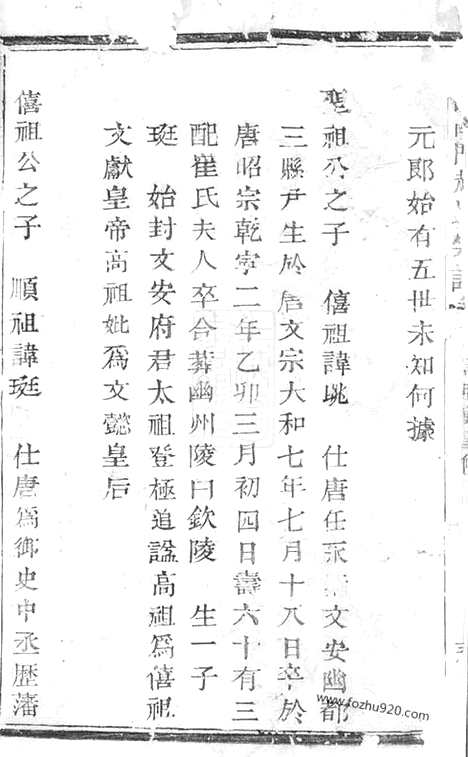 元郎始有五世未知何據
聖祖公之子 僖祖諱眺 仕唐任永 文安幽都
三縣尹生於唐文宗大和七年七月十八日卒於
唐昭宗乾寧二年乙卯三月初四日壽六十有三
配崔氏夫人卒合葬幽州陵曰欽陵 生一子
珽 始封文安府君太祖登極追謚高祖爲僖祖
文獻皇帝高祖妣爲文懿皇后
僖祖公之子 順祖諱珽 仕唐爲御史中丞歷藩
www.fozhu920.com